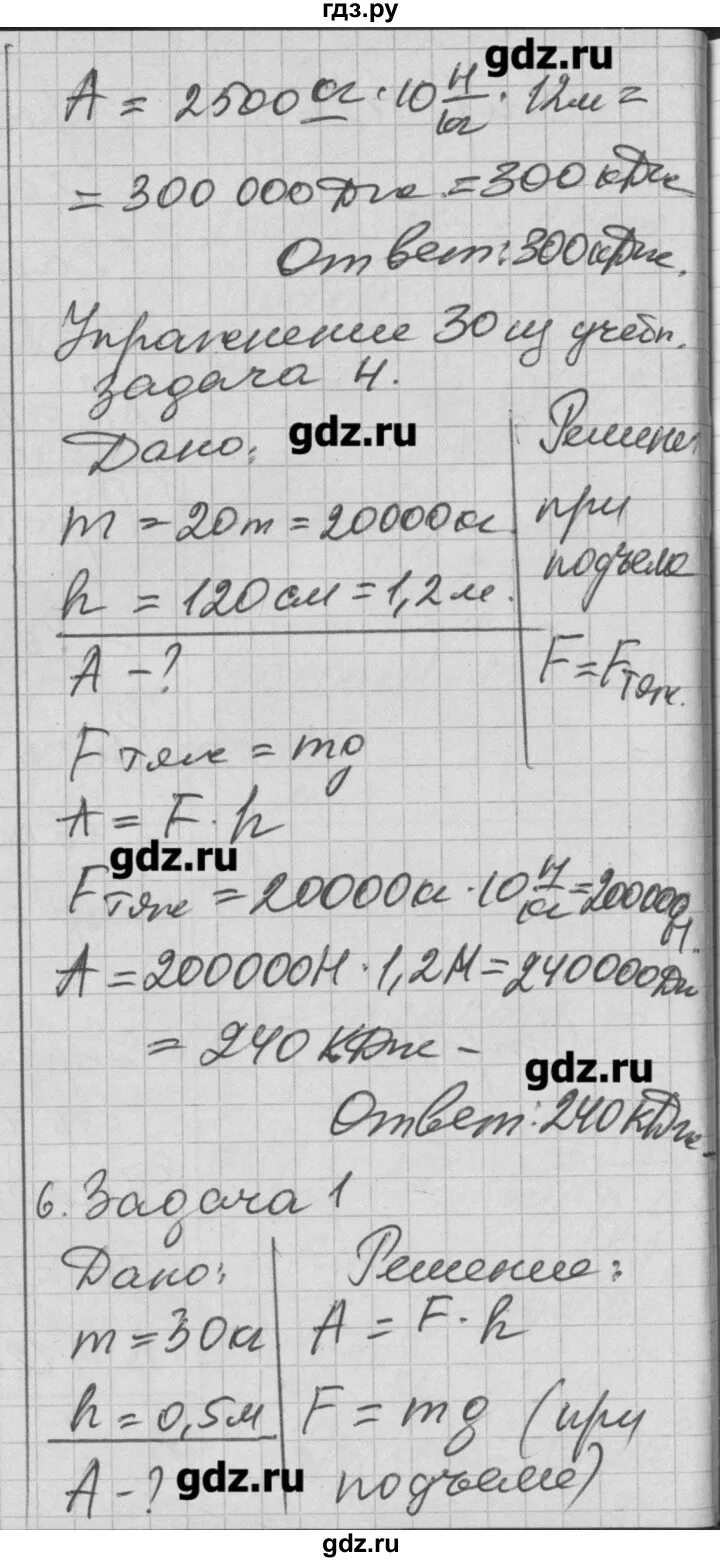 гдз.ру
gdz.ru
A = 2500 кг · 10 Н/кг · 12м =
= 300 000 Дж = 300 кДж
Ответ: 300 кДж.
Упражнение 30 из учебн.
задача 4.
gdz.ru
Дано:
m = 20т = 20000кг
h = 120см = 1,2м.
A - ?
Решени
при
подъеме
F = Fтяж.
Fтяж = mg
A = F · h
gdz.ru
Fтяж = 20000кг · 10 Н/кг = 200000 Н.
A = 200000Н · 1,2м = 240000Дж
= 240 кДж -
gdz.ru
Ответ: 240 кДж.
6. Задача 1
Дано:
m = 30кг
h = 0,5м
A - ?
gdz.ru
Решение:
A = F · h
F = mg (при
подъеме)
gdz.ru